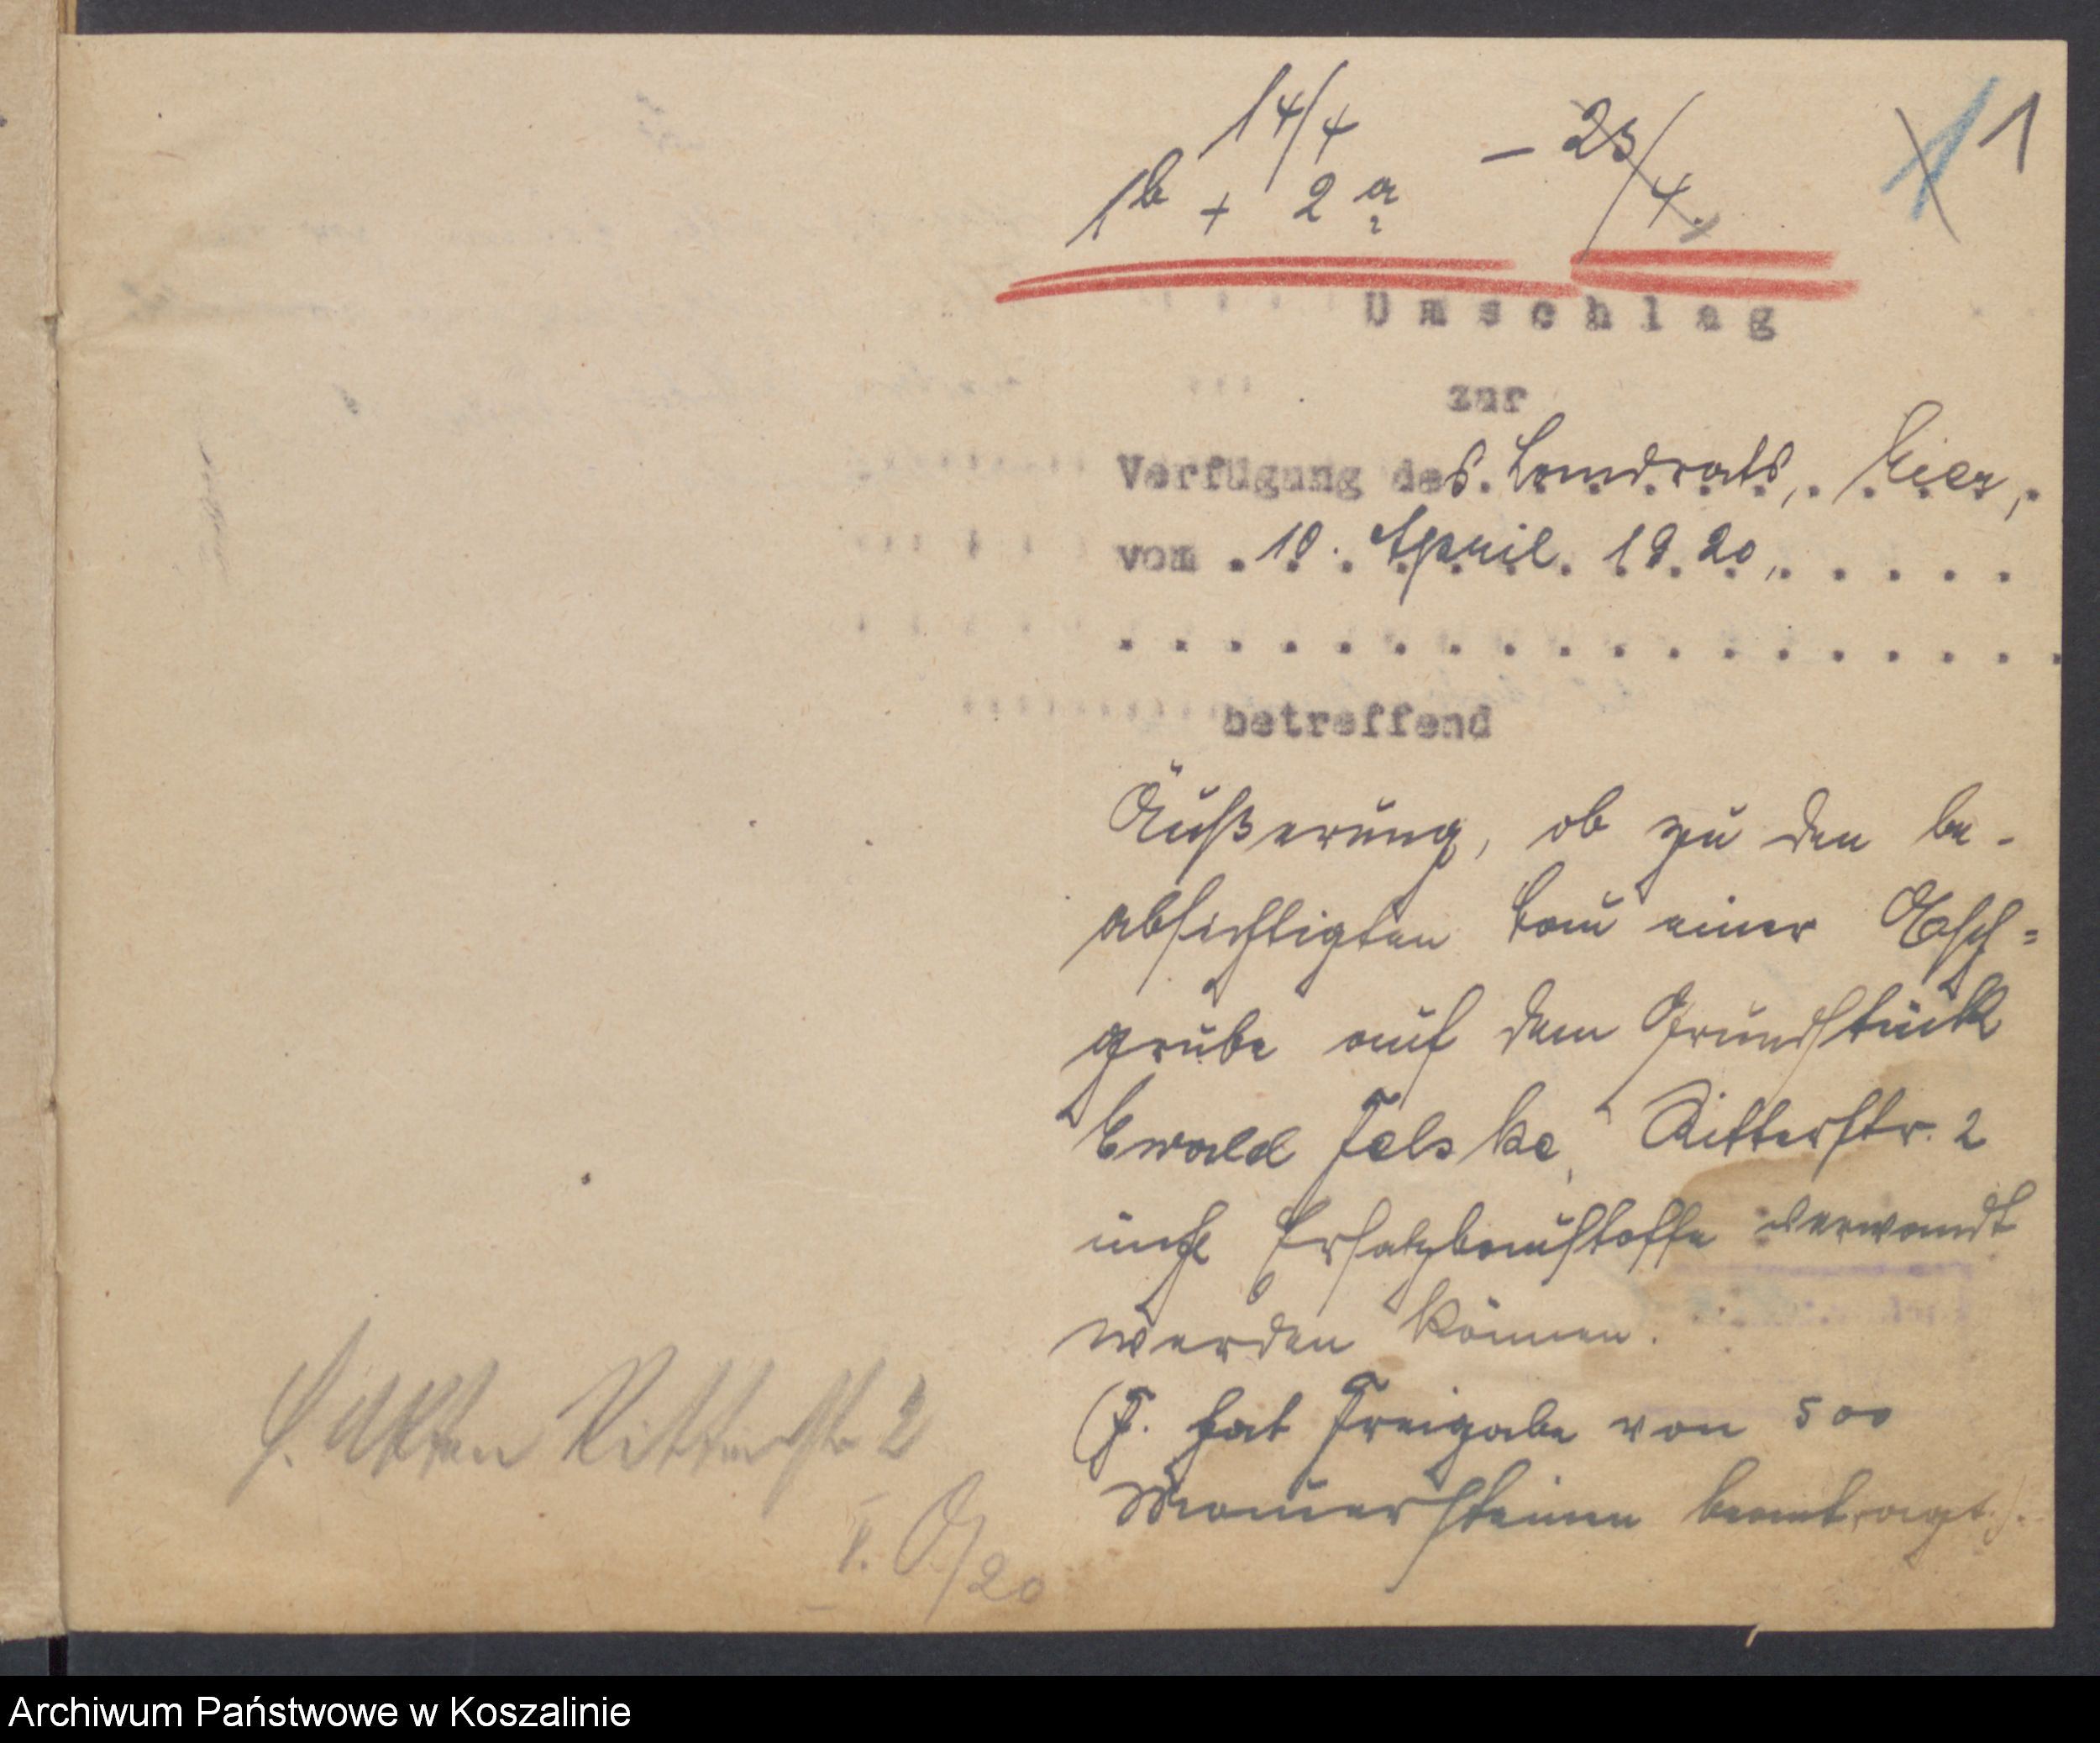 14/4 - 23/4.
1
1b + 2a
Umschlag
zur
Verfügung des Landrats, hier,
vom 10. April 1920,
betreffend
Äußerung, ob zu den be-
absichtigten Bau einer Asch=
grube auf dem Grundstück
Ewald Felske, Ritterstr. 2
Ersatzbaustoffe verwandt
werden können.
(F. hat Freigabe von 500
Mauersteinen beantragt.).
z. Akten Ritterstr 2
Archiwum Państwowe w Koszalinie